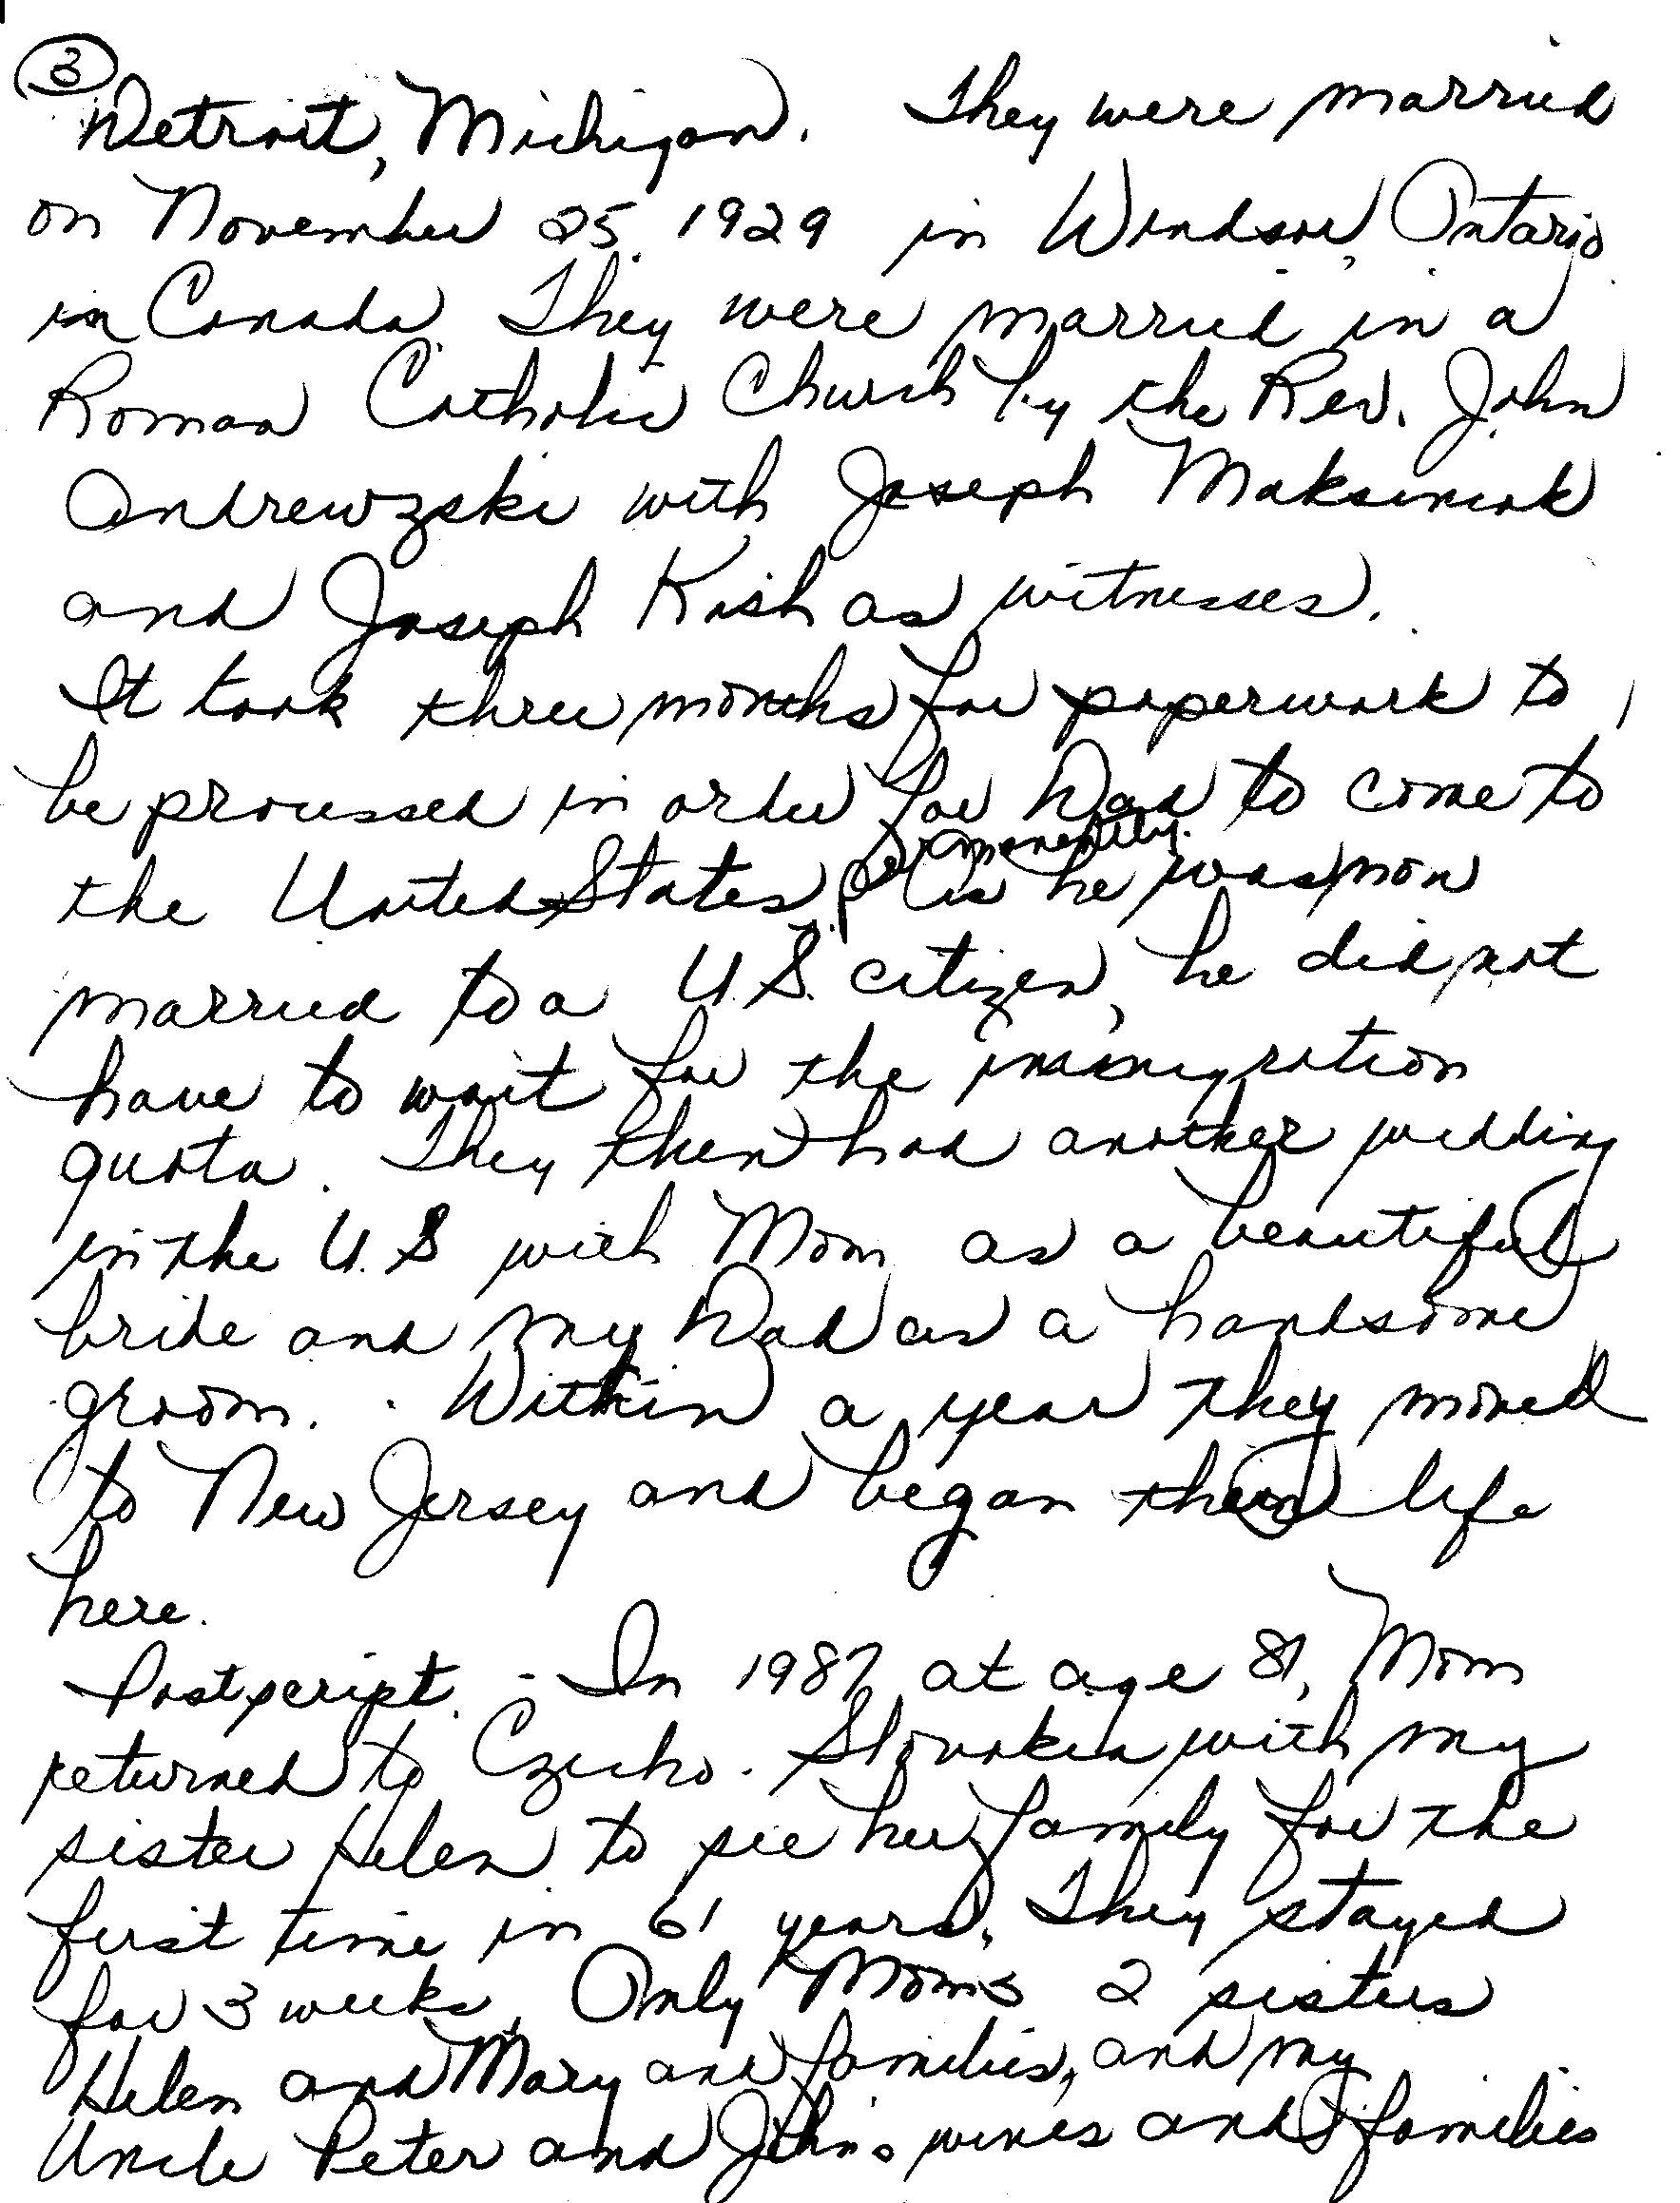 3
Detroit, Michigan. They were married
on November 25, 1929 in Windsor, Ontario
in Canada. They were married in a
Roman Catholic Church by the Rev. John
Andrewzski with Joseph Maksimiak
and Joseph Kish as witnesses.
It took three months for paperwork to
be processed in order for Dad to come to
the United States permanently. As he was now
married to a U.S. citizen, he did not
have to wait for the immigration
quota. They then had another wedding
in the U.S with Mom as a beautiful
bride and my Dad as a handsome
groom. Within a year they moved
to New Jersey and began their life
here.
Postscript. - In 1987 at age 81, Mom
returned to Czecho-Slovakia with my
sister Helen to see her family for the
first time in 61 years. They stayed
for 3 weeks. Only Moms 2 sisters
Helen and Mary and families, and my
Uncle Peter and Johns wives and families